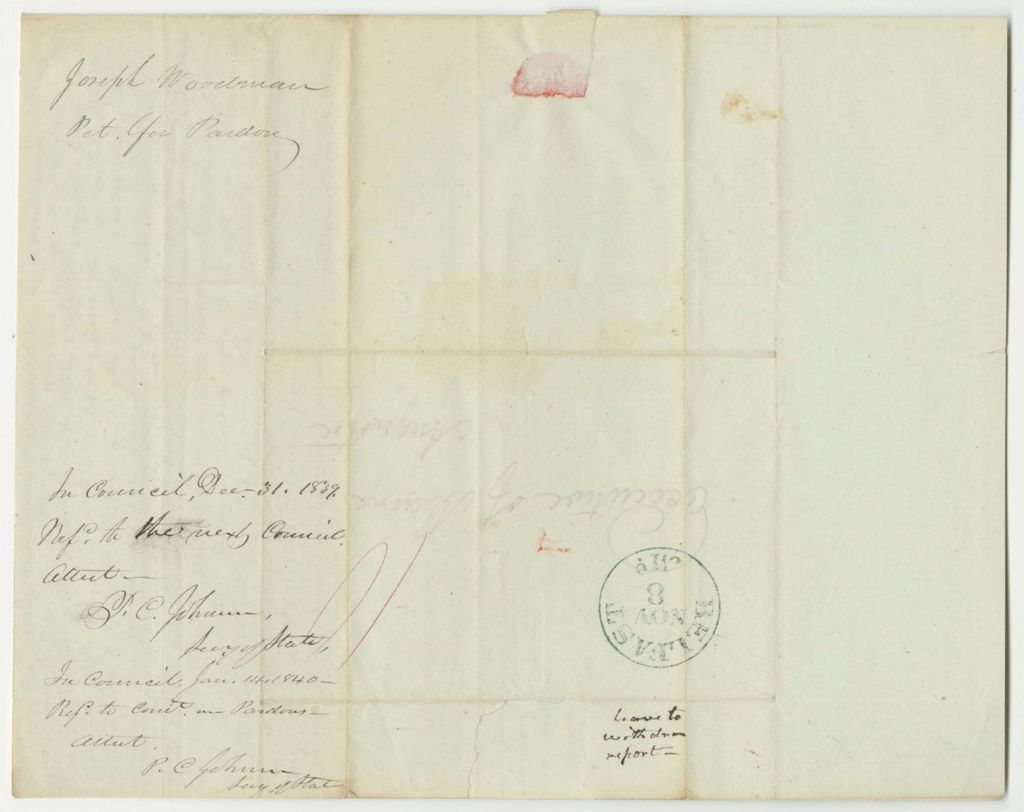 Joseph Woodman
Pet. for Pardon
In Council, Dec. 31. 1839.
Refd. to the next Council.
Attest—
P. C. Johnson,
Secy of State,
In Council, Jan. 14, 1840—
Refd. to Comt. on Pardons—
Attest,
P. C. Johnson
Secy. of State
Augusta
Executive of Maine
BELFAST
NOV
8
leave to
withdraw
report—